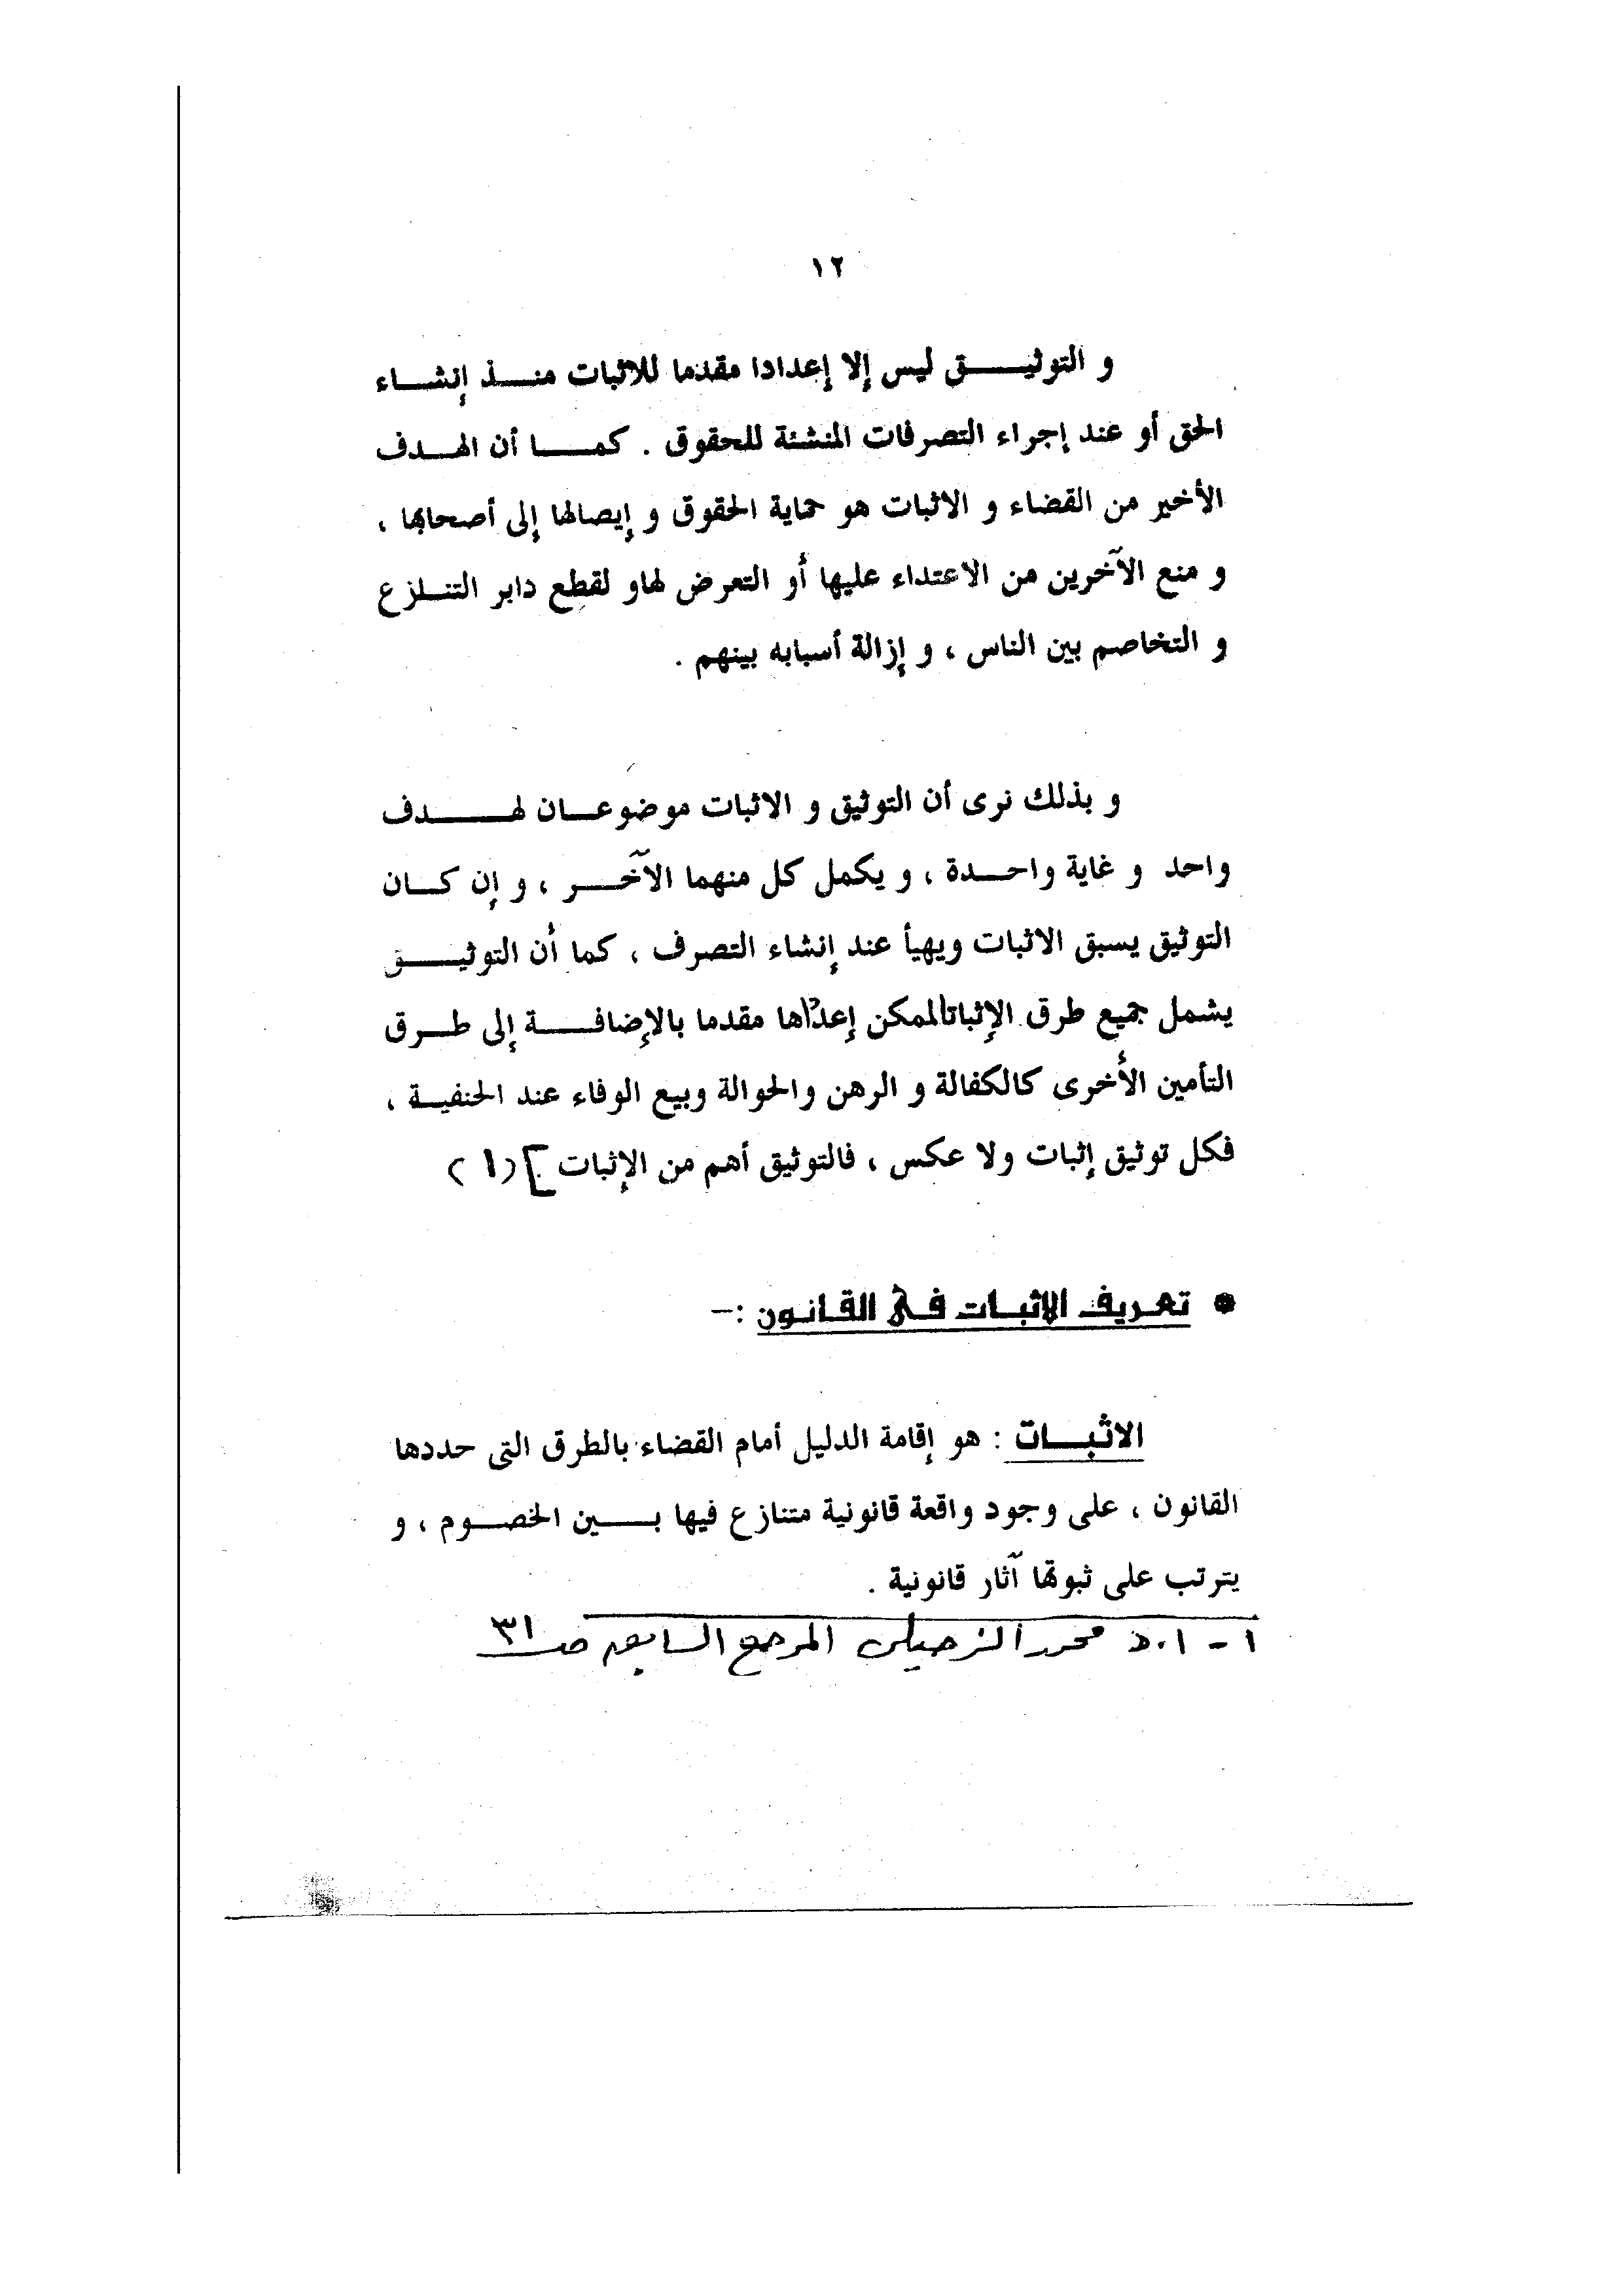 ١٢
و التوثيق ليس إلا إعدادا مقدما للاثبات منذ إنشاء
الحق أو عند إجراء التصرفات المنشئة للحقوق . كما أن الهدف
الأخير من القضاء و الاثبات هو حماية الحقوق و إيصالها إلى أصحابها ،
و منع الآخرين من الاعتداء عليها أو التعرض لهاو لقطع دابر التنلزع
و التخاصم بين الناس ، و إزالة أسبابه بينهم .
و بذلك نرى أن التوثيق و الاثبات موضوعان لهدف
واحد و غاية واحدة ، و يكمل كل منهما الآخر ، و إن كان
التوثيق يسبق الاثبات ويهيأ عند إنشاء التصرف ، كما أن التوثيق
يشمل جميع طرق الإثباتالممكن إعدادها مقدما بالإضافة إلى طرق
التأمين الأخرى كالكفالة و الرهن والحوالة وبيع الوفاء عند الحنفية ،
فكل توثيق إثبات ولا عكس ، فالتوثيق أهم من الإثبات ] (١)
* تعريف الاثبات فى القانون :–
الاثبات : هو إقامة الدليل أمام القضاء بالطرق التى حددها
القانون ، على وجود واقعة قانونية متنازع فيها بين الخصوم ، و
يترتب على ثبوتها آثار قانونية .
١ - ا.د محمد الزحيلى المرجع السابق صـ ٣١